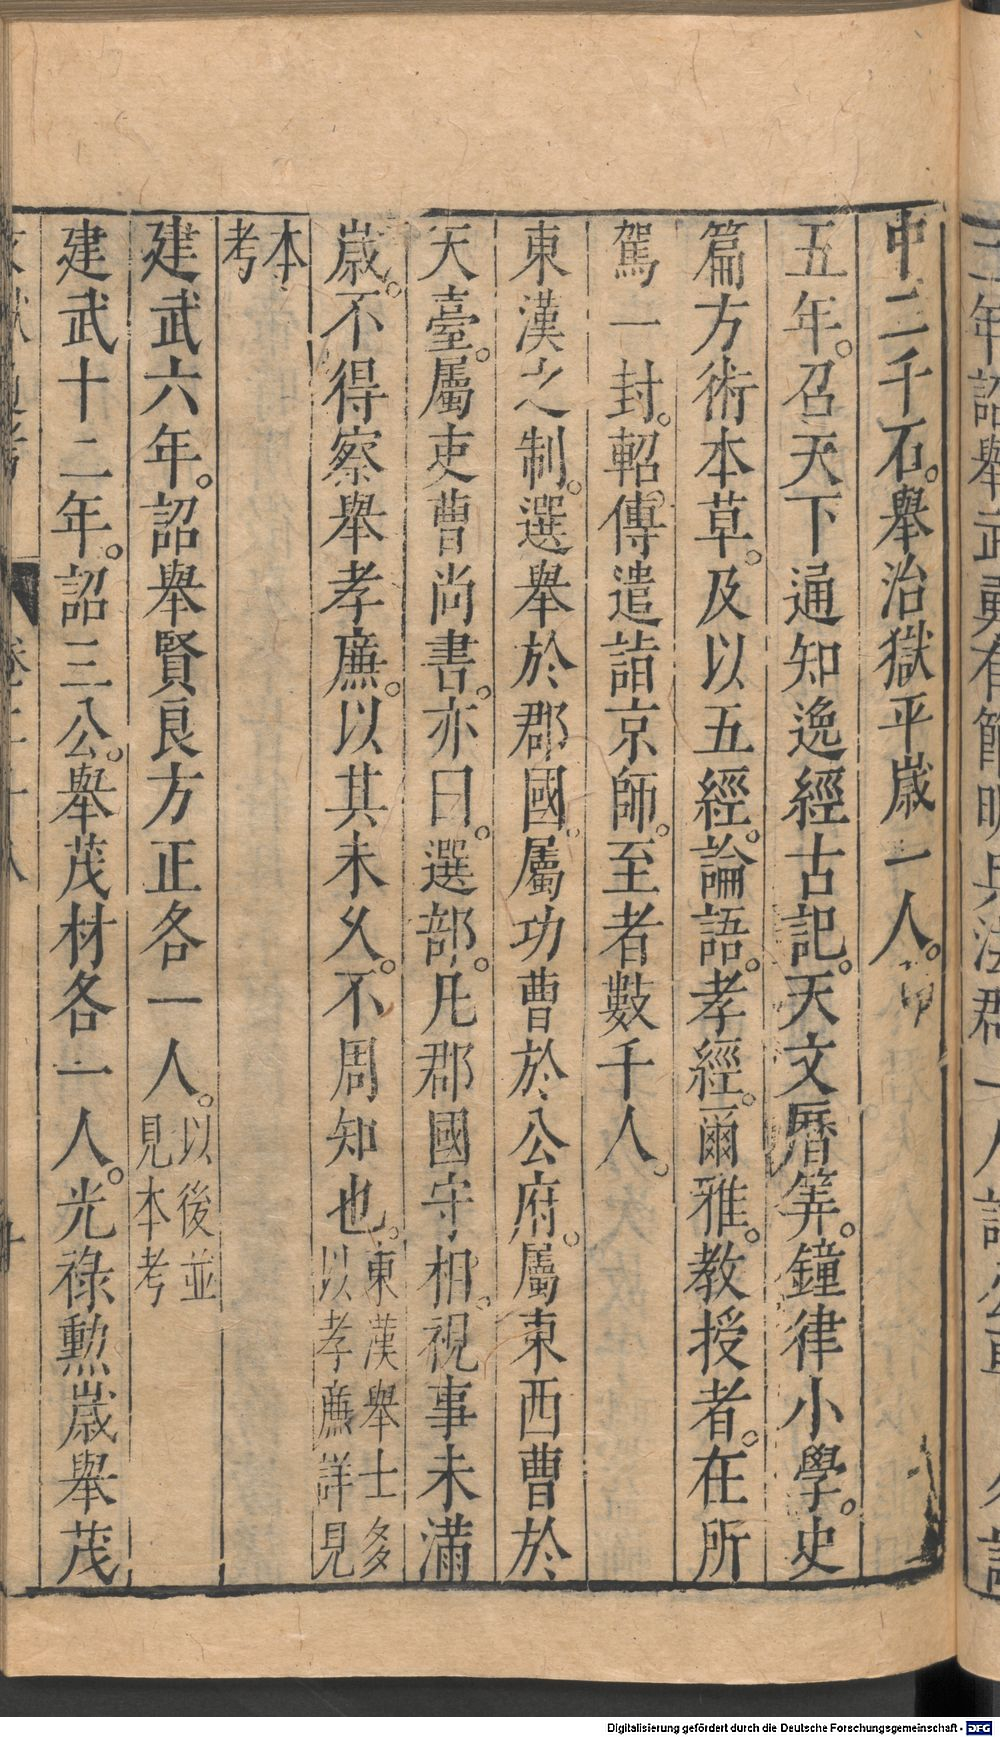 中二千石。舉治獄平歲一人。
五年。召天下通知逸經古記。天文曆筭。鐘律小學。史
篇方術本草。及以五經。論語。孝經。爾雅。教授者。在所
駕一封。軺。傳遣詣京師。至者數千人。
東漢之制。選舉於郡國。屬功曹於公府。屬東西曹於
天臺。屬吏曹尚書。亦曰。選部。凡郡國守相。視事未滿
歲。不得察舉孝廉。以其未久。不周知也。東漢舉士多
以孝廉詳見
本
考
建武六年。詔舉賢良方正各一人。以後並
見本考
建武十二年。詔三公。舉茂材各一人。光祿勲歲舉茂
Digitalisierung gefördert durch die Deutsche Forschungsgemeinschaft - DFG